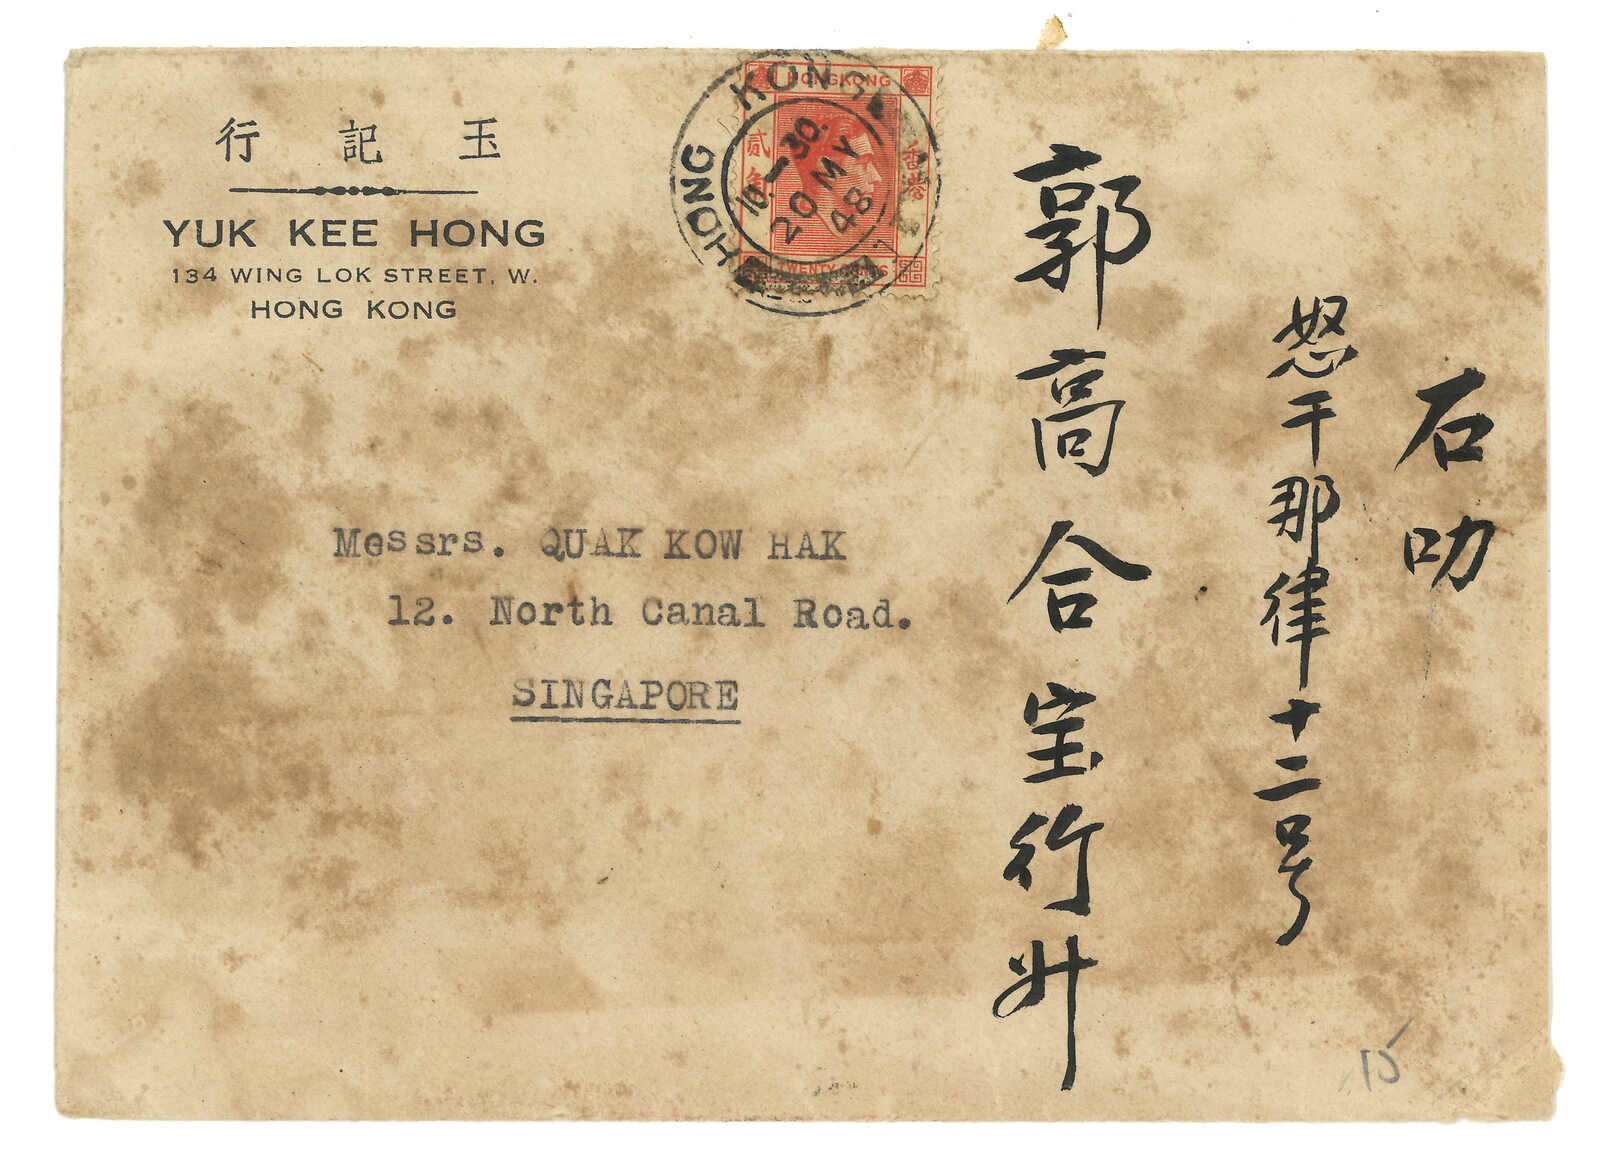 行記玉
YUK KEE HONG
134 WING LOK STREET, W.
HONG KONG
HONG KONG
10-30
20 MY
48
HONGKONG
貳角
香港
TWENTY CENTS
Messrs. QUAK KOW HAK
12. North Canal Road.
SINGAPORE
石叻
怒干那律十二号
郭高合宝行升
15